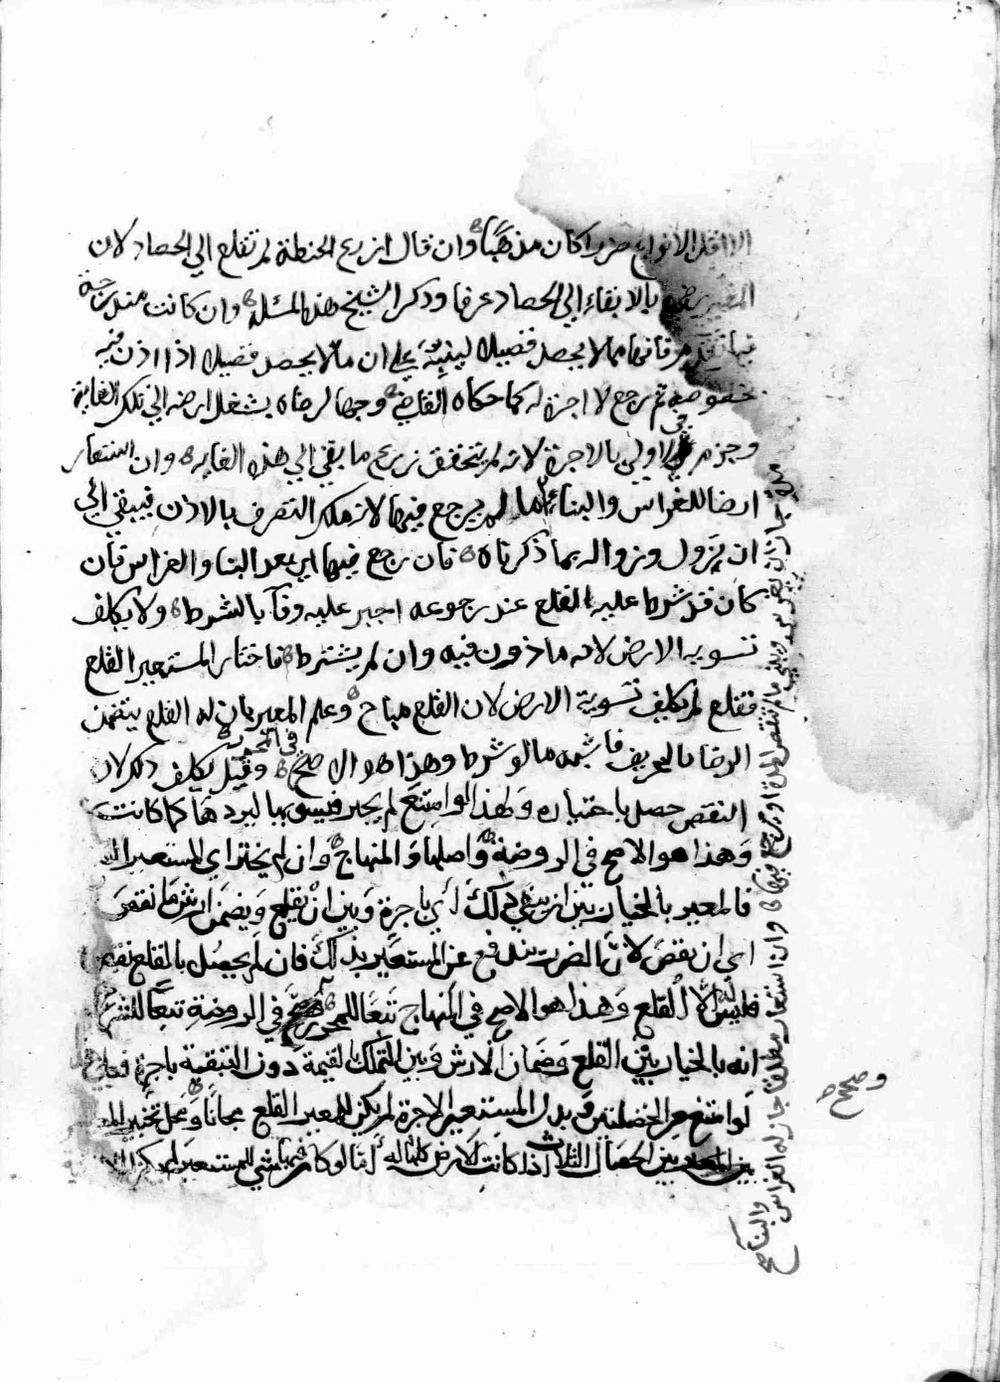 الا اقل الانواع ضررا كان مذهبا وان قال ازرع الحنطة لم تقلع الي الحصاد لان
المعير رضي بالابقاء الي الحصاد عرفا وذكر الشيخ هذه المسئلة وان كانت مندرجة
فيما تقدم فانها مما لا يحصل فصيلا لينبه علي ان ما لا يحصل فصيلا اذا اذن فيه
بخصوصه ثم رجع لا اجرة له كما حكاه القاضي وجها لرضاه بشغل ارضه الي تلك الغاية
وجزم في الاولي بالاجرة لانه لم يتحقق زرع ما بقي الي هذه الغايه وان استعار
ارضا للغراس والبناء ما لم يرجع فيها لانه ملك التصرف بالاذن فيبقي الي
ان يزول وزواله بما ذكرناه فان رجع فيها اي بعد البنا والغراس فان
كان قد شرط عليه القلع عند رجوعه اجبر عليه وفآ بالشرط ولا يكلف
تسويه الارض لانه ماذون فيه وان لم يشترط فاختار المستعير القلع
فقلع لم يكلف تسوية الارض لان القلع مباح وعلم المعير بان له القلع يتضمن
الرضا بالحريف فاشبه ما لو شرط وهذا هو الاصح في المحرر وقيل يكلف ذلك لان
النقص حصل باختياره ولهذا لو امتنع لم يجبر فيسويها ليردها كما كانت
وهذا هو الاصح في الروضة واصلها والمنهاج وان لم يختر اي المستعير
فالمعير بالخيار بين ان يبقي ذلك اي باجرة وبين ان يقلع ويضمن ارش ما نقص
اي ان نقص لان الضرر يندفع عن المستعير بذلك فان لم يحصل بالقلع نقص
فليس له الا القلع وهذا هو الاصح في المنهاج تبعا للمحرر وصحح في الروضة تبعا للشرح
انه بالخيار بين القلع وضمان الارش وبين التملك بالقيمة دون التبقية باجرة فعلي
لو امتنع من الخصلتين وبدل المستعير الاجرة لم يكن للمعير القلع مجانا ومحل تخيير
بين الخصال الثلاث اذا كانت الارض كلها له اما لو كان فيها شي للمستعير لم يكن
جاز ان يغرس ويبني ما لم تنقض المدة او يرجع فيها وان استعار مطلقا جاز له الغراس
والبنآ صح
وصحح